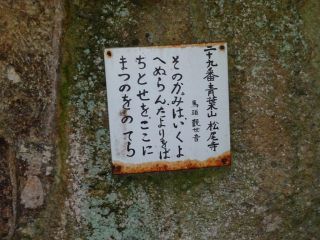 二十九番青葉山 松尾寺
馬頭観世音
そのかみはいくよ
へぬらんたよりをば
ちとせをここに
まつのをのてら